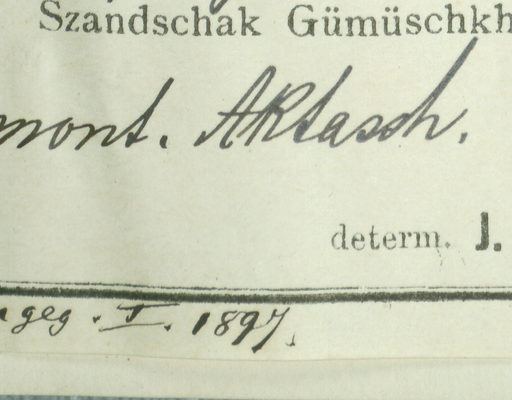 Szandschak Gümüschkh
mont. Aktasch.
determ. J.
geg. I. 1897.